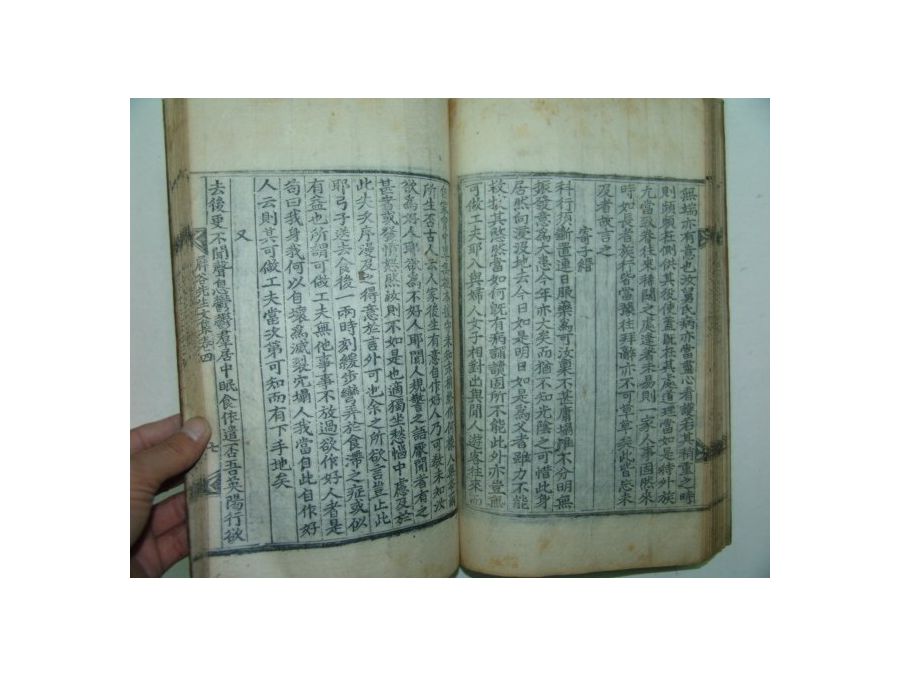 無端亦有意也汝舅氏病亦當盡心看護若其稍重之時
則頭頭在側供其役使蓋旣在其處道理當如是特外族
尤當致眷
時如長者族行皆當歷往拜辭亦不可草草矣此皆恐未
及者故言之
寄子縉
科行須斷置連日服藥爲可汝稟不甚膚壅雖不分明無
振發意爲大患今年亦大矣而猶不知光陰之可惜此身
居然向漫沒地去今日如是明日如是爲父者雖力不能
救拔其愍然當如何旣有病誦讀固所不能此外亦豈無
可做工夫耶人與婦人女子相對出與閒人遊客往來而
所生否古人云人家後生有意自作好人乃可敎未知汝
欲爲好人耶欲爲不好人耶聞人規警之語厭聞者有之
甚者或發憤懟然汝則不如是也適獨坐愁惱中慮及於
此夫子庠漫及之得意於言外可也余之所欲言豈止此
耶弓子送去食後一兩時刻緩步彎弄於食滯之症或似
有益也所謂可做工夫無他事事不放過欲作好人者是
苟曰我身我何以自壞爲滅裂冗塌人我當自此自作好
人云則其可做工夫當次第可知而有下手地矣
又
去後更不聞聲息鬱鬱羣居中眠食依遣否吾英陽行欲
屛谷先生文集卷四
七